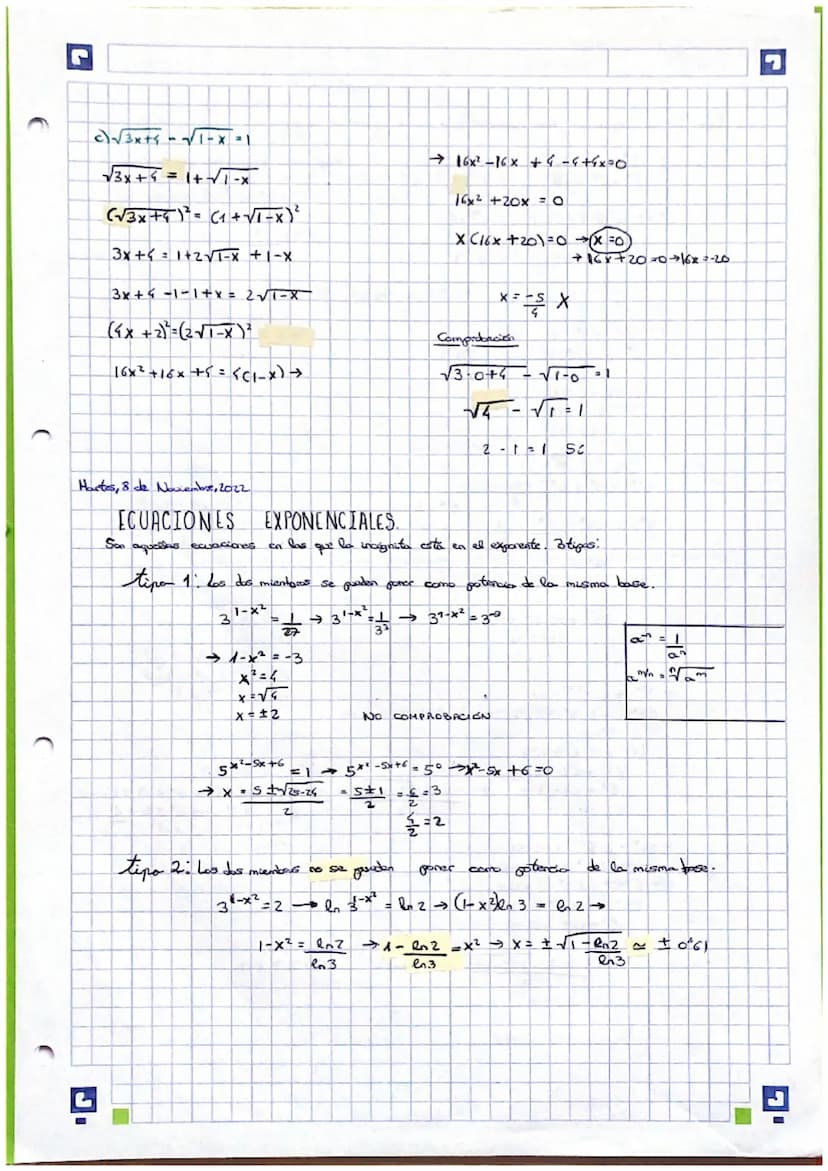 c) √3x+4 - √1-x = 1
√3x+4 = 1+√1-x
(√3x+4)² = (1+√1-x)²
3x+4 = 1+2√1-x +1-x
3x+4 -1-1+x = 2√1-x
(4x+2)²=(2√1-x)²
16x²+16x+4 = 4(1-x) →
→ 16x² -16x +4 -4+4x=0
16x² +20x = 0
x(16x+20)=0 → x=0
→ 16x+20=0→16x=-20
x = -5/4 X
Comprobación
√3·0+4 - √1-0 = 1
√4 - √1 = 1
2 - 1 = 1 Sí
Martes, 8 de Noviembre, 2022
ECUACIONES EXPONENCIALES.
Son aquellas ecuaciones en las que la incógnita está en el exponente. 3 tipos:
tipo 1: Los dos miembros se pueden poner como potencia de la misma base.
3^1-x² = 1/27 → 3^1-x² = 1/3³ → 3^1-x² = 3^-3
→ 1-x² = -3
x² = 4
x = √4
x = ±2
NO COMPROBACIÓN
a^-n = 1/a^n
a^m/n = ⁿ√a^m
5^x²-5x+6 = 1 → 5^x²-5x+6 = 5⁰ → x²-5x+6=0
→ x = 5±√25-24/2 = 5±1/2 = 6/2 = 3
4/2 = 2
tipo 2: Los dos miembros no se pueden poner como potencia de la misma base.
3^1-x² = 2 → ln 3^1-x² = ln 2 → (1-x²)ln 3 = ln 2 →
1-x² = ln2/ln3 → 1 - ln2/ln3 = x² → x = ±√1-ln2/ln3 ≃ ± 0'61